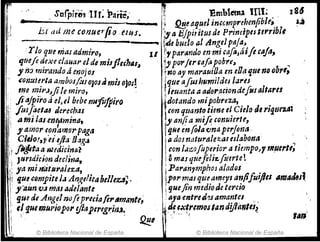 Suspiros III. Parte,
Et ad me conuersio eius.
Ylo que mas admiro,
que se dexe clauar el de mis flechas,
y no mirando à enojos
conuierta ambos sus ojos à mis ojos:
me mira, si le miro,
si aspiro à el, el bebe mi suspiro
sus saetas derechas
a mi las encamina,
y amor con amor paga
Cielo! y si esta llaga
sujeta a medicina?
jurisdicion declina,
ya mi naturaleza,
que compite la Angelica belleza,
y aun va mas adelante
que de Angel no se precia ser amante,
el que murio por esta peregrina.
Que
Emblema III. 186
Que aquel incomprehensible,
y a Espiritus de Principes terrible
de buelo al Angel pasa,
y parando en mi casa, assi se casa,
y por ser casa pobre,
no ay marauilla en ella que no obre,
que a sus humildes lares
leuanta a adoracion de sus altares
dotando mi pobreza,
con quanto tiene el Cielo de riqueza:
y ansi a mi se conuierte,
que en sola vna persona
a dos naturalezas eslabona
con lazo superior a tiempo, y muerte,
ò mas que feliz suerte!
Paranymphos alados
por mas que ameys ansi fuistes amados?
que sin medio de tercio
aya entre dos amantes
de extremos tan distantes,
tan
© Biblioteca Nacional de España
© Biblioteca Nacional de España